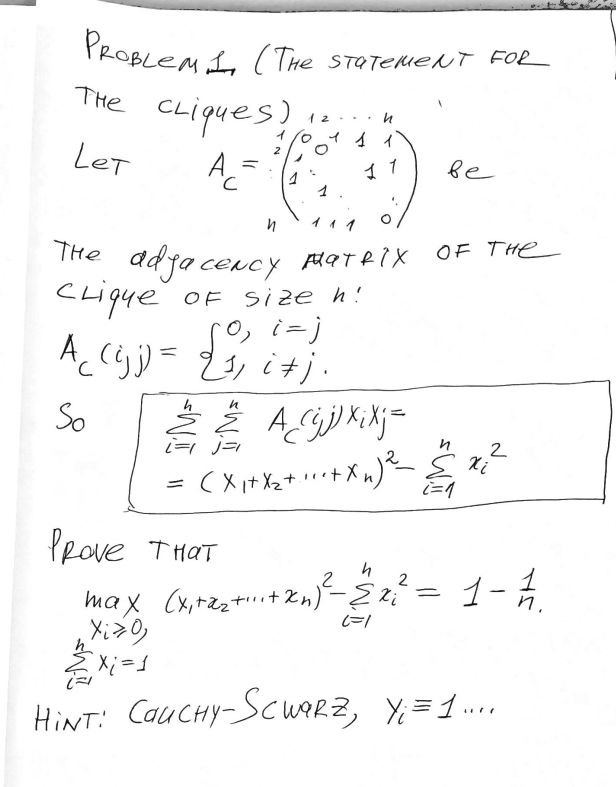 PROBLEM 1 (THE STATEMENT FOR
THE CLIQUES)
1 2 . . . n
LET A_C = 1 2 ⋮ n ( 0 1 1 1 0 1 1 1 1 1 1 1 1 0 ) BE
THE ADJACENCY MATRIX OF THE
CLIQUE OF SIZE n:
A_C(i,j) = { 0, i=j
1, i≠j.
SO ∑_{i=1}^{n} ∑_{j=1}^{n} A_C(i,j) x_i x_j =
= (x_1+x_2+...+x_n)^2 - ∑_{i=1}^{n} x_i^2
PROVE THAT
max (x_1+x_2+...+x_n)^2 - ∑_{i=1}^{n} x_i^2 = 1 - 1/n.
x_i ≥ 0,
∑_{i=1}^{n} x_i = 1
HINT: CAUCHY-SCWARZ, y_i ≡ 1 ....